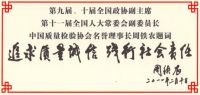 第九届、十届全国政协副主席
第十一届全国人大常委会副委员长
中国质量检验协会名誉理事长周铁农题词
追求质量诚信 践行社会责任
周铁农
二〇一一年二月十日